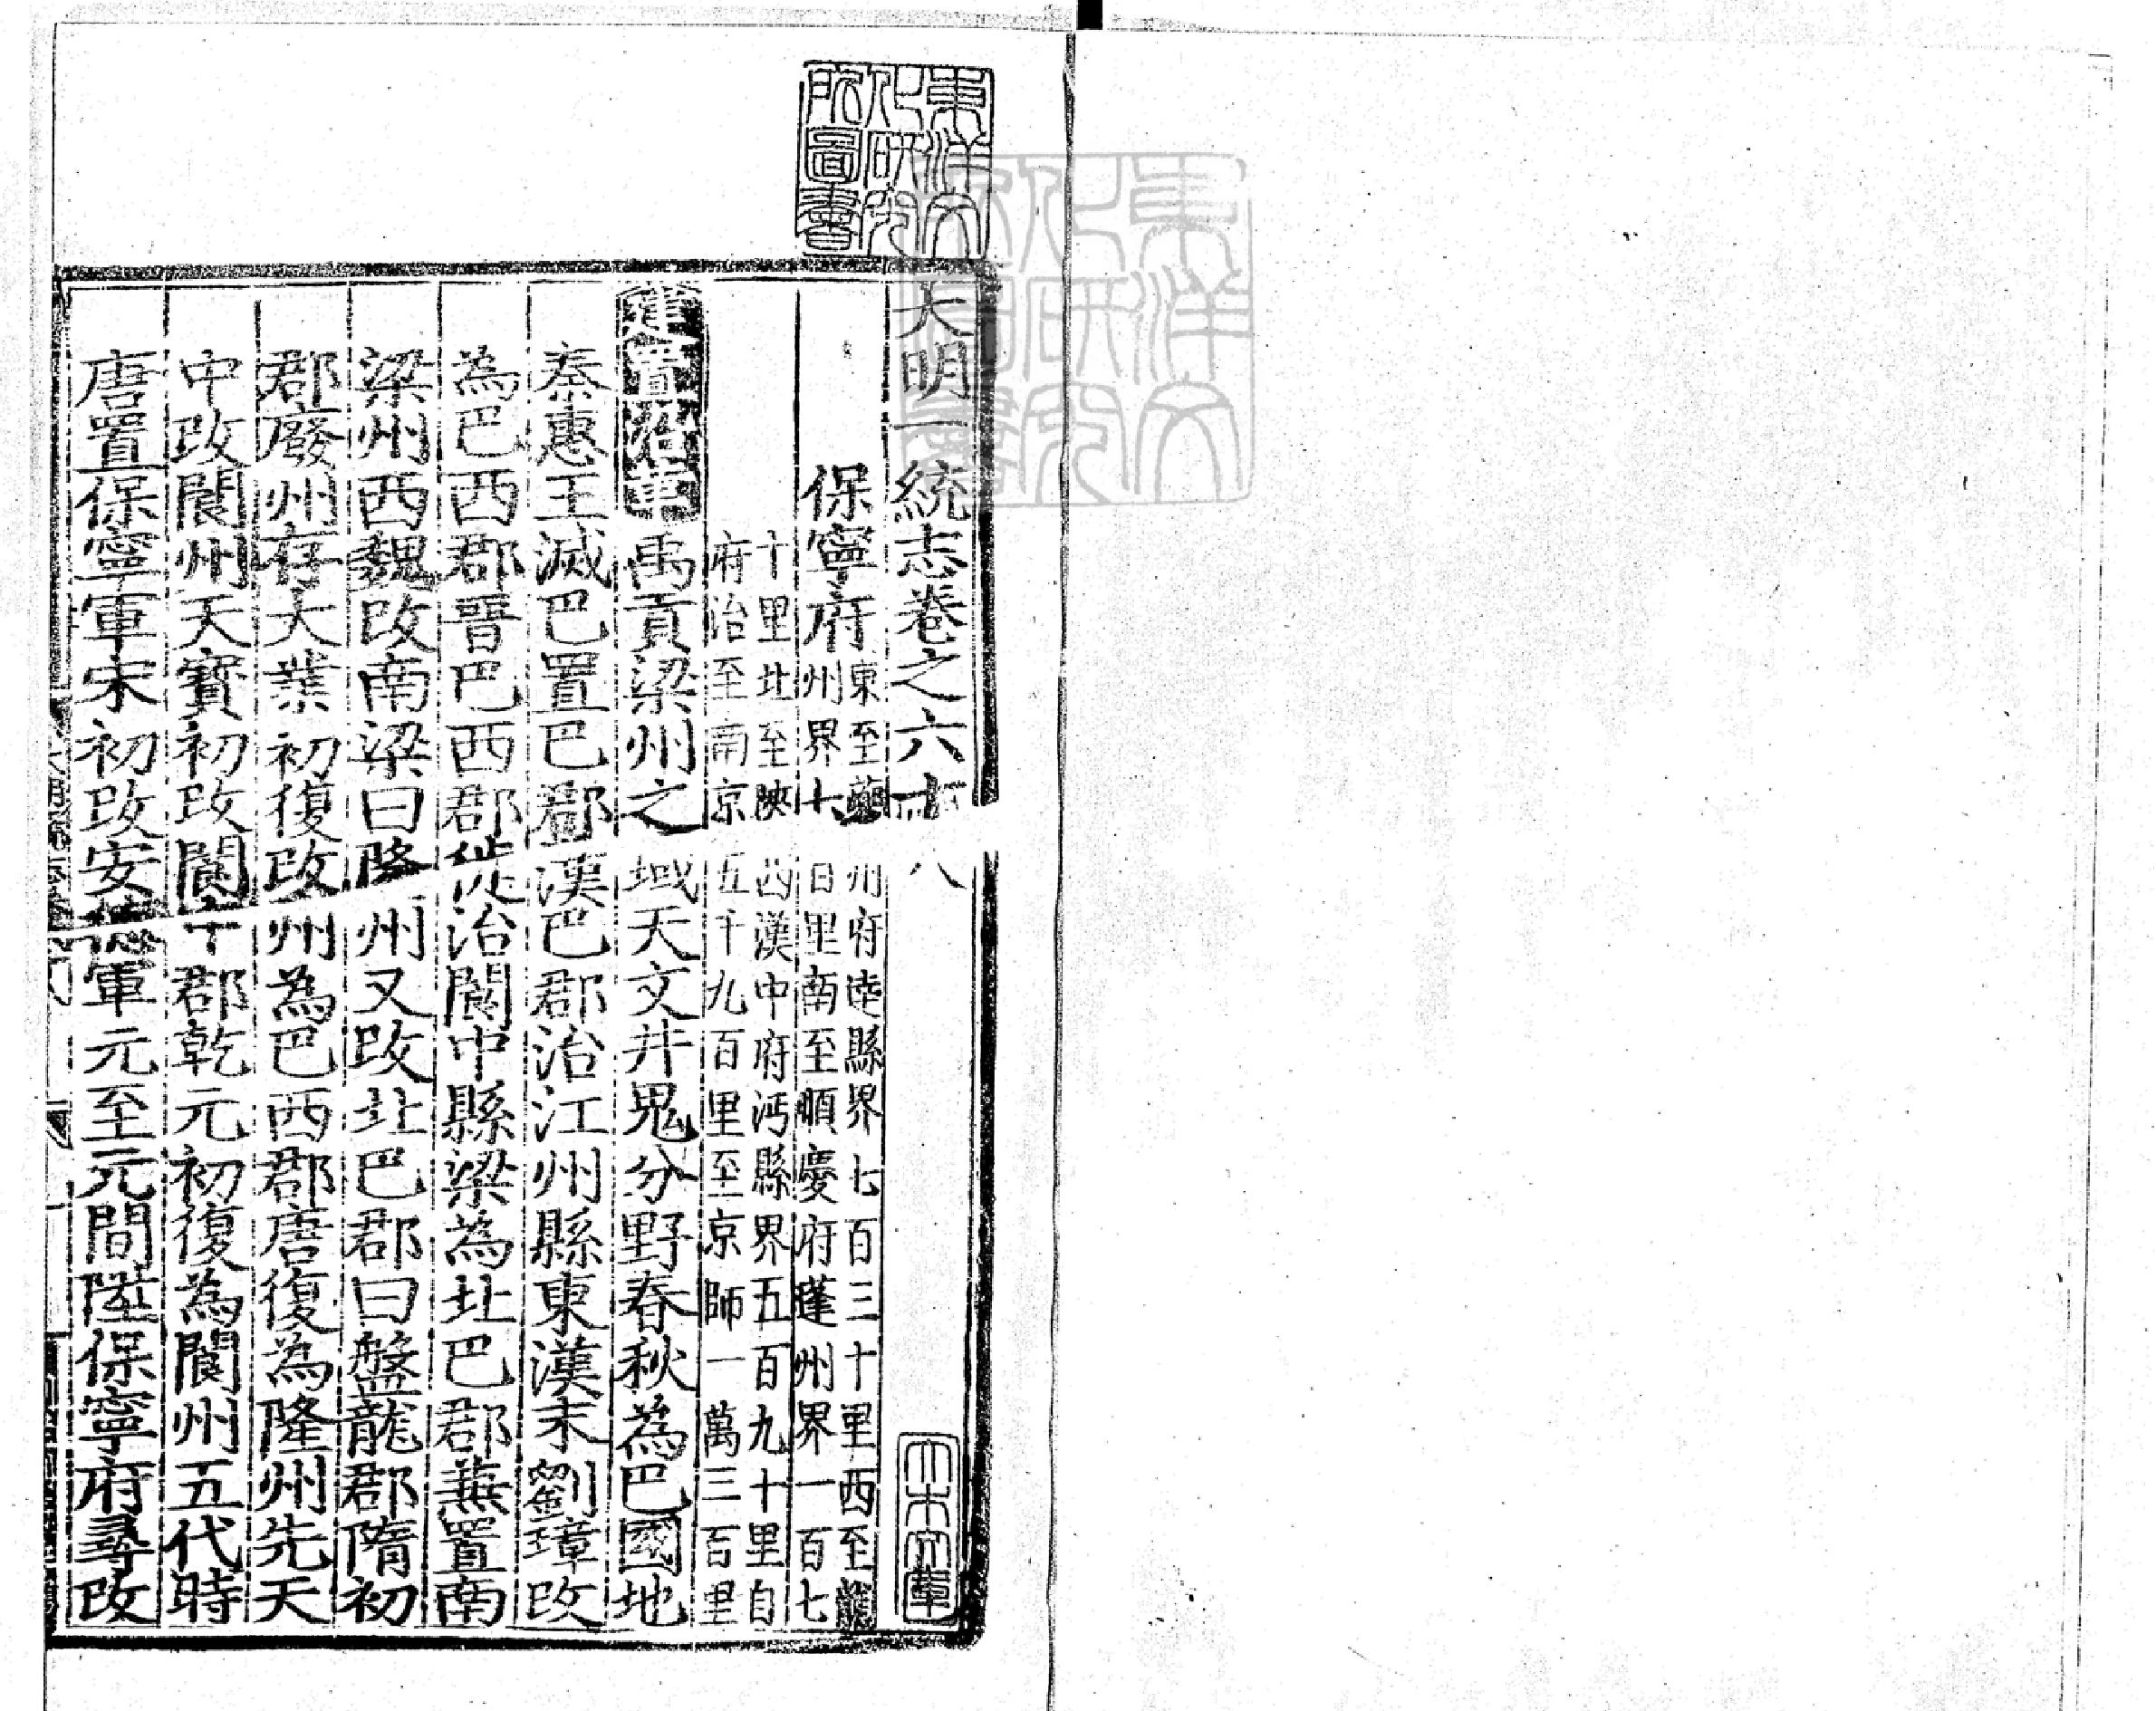 大明一統志卷之六十八
保寧府
東至夔州府達縣界七百三十里西至龍
州界七十里南至順慶府蓬州界一百七
十里北至陝西漢中府沔縣界五百九十里自
府治至南京五千九百里至京師一萬三百里
建置沿革
禹貢梁州之域天文井鬼分野春秋為巴國地
秦惠王滅巴置巴郡漢巴郡治江州縣東漢末劉璋改
為巴西郡晉巴西郡徙治閬中縣梁為北巴郡兼置南
梁州西魏改南梁曰隆州又改北巴郡曰盤龍郡隋初
郡廢州存大業初復改州為巴西郡唐復為隆州先天
中改閬州天寶初改閬中郡乾元初復為閬州五代時
唐置保寧軍宋初改安德軍元至元間陞保寧府尋改
東洋文化研究所圖書
東洋文化研究所圖書
大木文庫